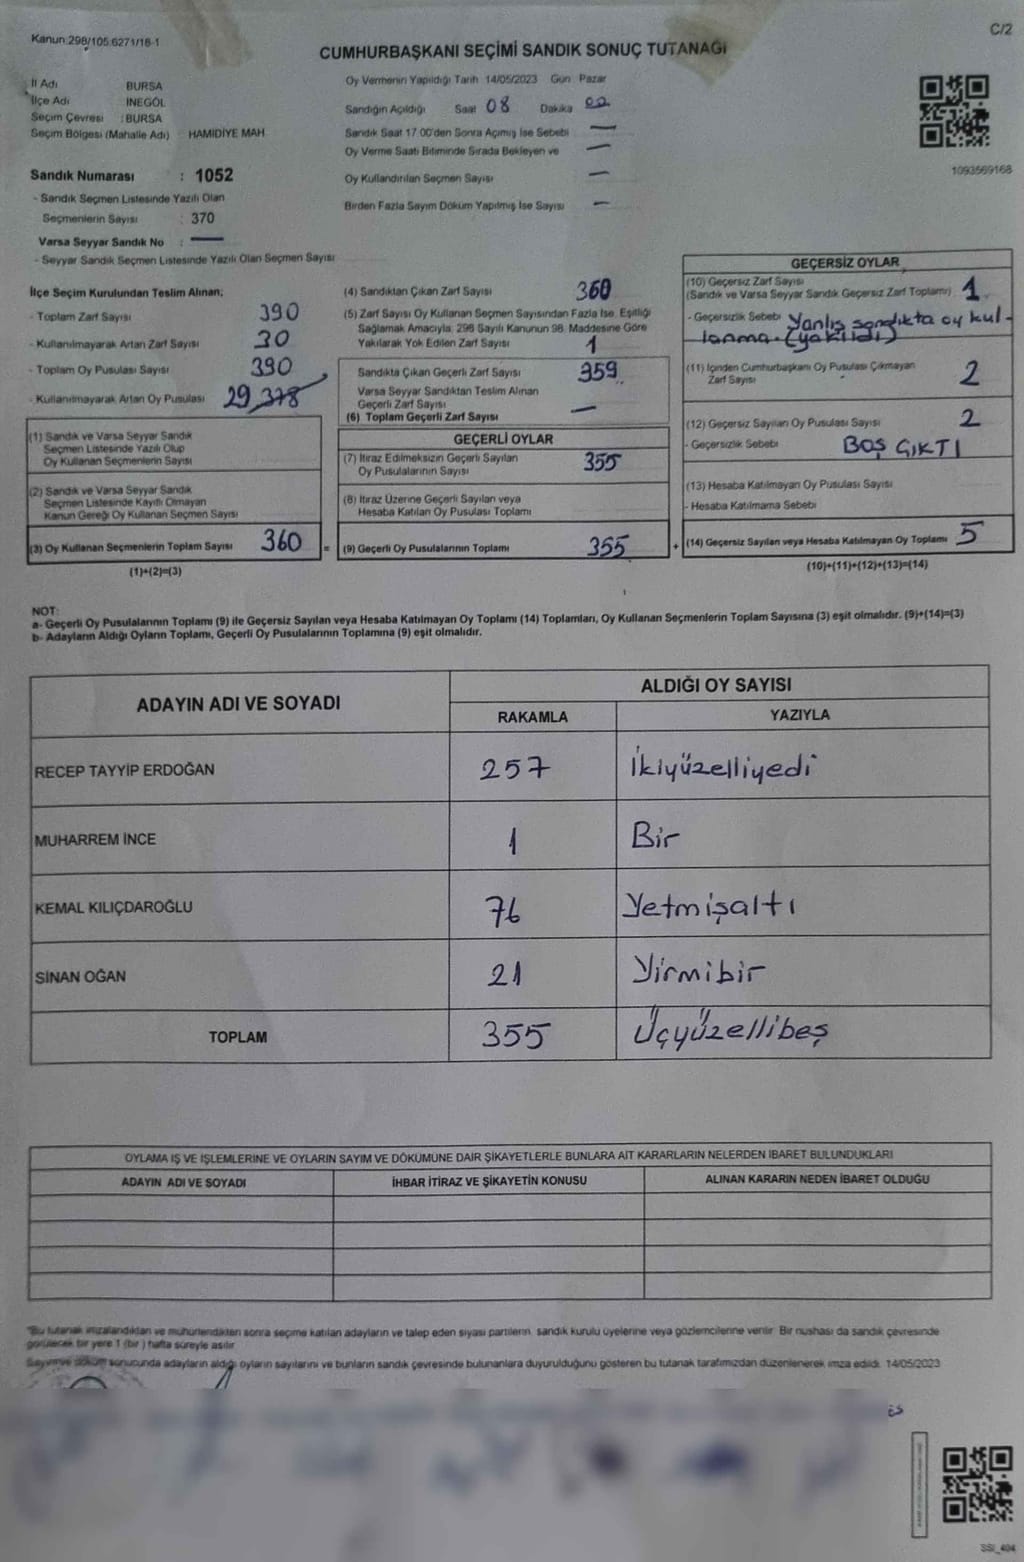 Kanun:298/105.6271/18-1
C/2
CUMHURBAŞKANI SEÇİMİ SANDIK SONUÇ TUTANAĞI
İl Adı BURSA
İlçe Adı İNEGÖL
Seçim Çevresi : BURSA
Seçim Bölgesi (Mahalle Adı) : HAMİDİYE MAH
Sandık Numarası : 1052
- Sandık Seçmen Listesinde Yazılı Olan
Seçmenlerin Sayısı : 370
Varsa Seyyar Sandık No : —
- Seyyar Sandık Seçmen Listesinde Yazılı Olan Seçmen Sayısı
Oy Vermenin Yapıldığı Tarih 14/05/2023 Gün Pazar
Sandığın Açıldığı Saat 08 Dakika 00
Sandık Saat 17.00'den Sonra Açımış İse Sebebi —
Oy Verme Saati Bitiminde Sırada Bekleyen ve —
Oy Kullandırılan Seçmen Sayısı —
Birden Fazla Sayım Döküm Yapılmış İse Sayısı —
1093569168
İlçe Seçim Kurulundan Teslim Alınan;
- Toplam Zarf Sayısı 390
- Kullanılmayarak Artan Zarf Sayısı 30
- Toplam Oy Pusulası Sayısı 390
- Kullanılmayarak Artan Oy Pusulası 29 378
(1) Sandık ve Varsa Seyyar Sandık
Seçmen Listesinde Yazılı Olup
Oy Kullanan Seçmenlerin Sayısı
(2) Sandık ve Varsa Seyyar Sandık
Seçmen Listesinde Kayıtlı Olmayan
Kanun Gereği Oy Kullanan Seçmen Sayısı
(3) Oy Kullanan Seçmenlerin Toplam Sayısı 360 =
(1)+(2)=(3)
(4) Sandıktan Çıkan Zarf Sayısı 360
(5) Zarf Sayısı Oy Kullanan Seçmen Sayısından Fazla İse, Eşitliği
Sağlamak Amacıyla; 298 Sayılı Kanunun 98. Maddesine Göre
Yakılarak Yok Edilen Zarf Sayısı 1
Sandıkta Çıkan Geçerli Zarf Sayısı 359
Varsa Seyyar Sandıktan Teslim Alınan
Geçerli Zarf Sayısı —
(6) Toplam Geçerli Zarf Sayısı
GEÇERLİ OYLAR
(7) İtiraz Edilmeksizin Geçerli Sayılan
Oy Pusulalarının Sayısı 355
(8) İtiraz Üzerine Geçerli Sayılan veya
Hesaba Katılan Oy Pusulası Toplamı
(9) Geçerli Oy Pusulalarının Toplamı 355 +
GEÇERSİZ OYLAR
(10) Geçersiz Zarf Sayısı
(Sandık ve Varsa Seyyar Sandık Geçersiz Zarf Toplamı) 1
- Geçersizlik Sebebi Yanlış sandıkta oy kul-
lanma. (yakıldı)
(11) İçinden Cumhurbaşkanı Oy Pusulası Çıkmayan
Zarf Sayısı 2
(12) Geçersiz Sayılan Oy Pusulası Sayısı 2
- Geçersizlik Sebebi BOŞ ÇIKTI
(13) Hesaba Katılmayan Oy Pusulası Sayısı
- Hesaba Katılmama Sebebi
(14) Geçersiz Sayılan veya Hesaba Katılmayan Oy Toplamı 5
(10)+(11)+(12)+(13)=(14)
NOT:
a- Geçerli Oy Pusulalarının Toplamı (9) ile Geçersiz Sayılan veya Hesaba Katılmayan Oy Toplamı (14) Toplamları, Oy Kullanan Seçmenlerin Toplam Sayısına (3) eşit olmalıdır. (9)+(14)=(3)
b- Adayların Aldığı Oyların Toplamı, Geçerli Oy Pusulalarının Toplamına (9) eşit olmalıdır.
ADAYIN ADI VE SOYADI
ALDIĞI OY SAYISI
RAKAMLA YAZIYLA
RECEP TAYYİP ERDOĞAN 257 İkiyüzelliyedi
MUHARREM İNCE 1 Bir
KEMAL KILIÇDAROĞLU 76 Yetmişaltı
SİNAN OĞAN 21 Yirmibir
TOPLAM 355 Üçyüzellibeş
OYLAMA İŞ VE İŞLEMLERİNE VE OYLARIN SAYIM VE DÖKÜMÜNE DAİR ŞİKAYETLERLE BUNLARA AİT KARARLARIN NELERDEN İBARET BULUNDUKLARI
ADAYIN ADI VE SOYADI İHBAR İTİRAZ VE ŞİKAYETİN KONUSU ALINAN KARARIN NEDEN İBARET OLDUĞU
*Bu tutanak imzalandıktan ve mühürlendikten sonra seçime katılan adayların ve talep eden siyasi partilerin, sandık kurulu üyelerine veya gözlemcilerine verilir. Bir nüshası da sandık çevresinde
görülecek bir yere 1 (bir) hafta süreyle asılır
Sayım ve döküm sonucunda adayların aldığı oyların sayılarını ve bunların sandık çevresinde bulunanlara duyurulduğunu gösteren bu tutanak tarafımızdan düzenlenerek imza edildi. 14/05/2023
SSI_404